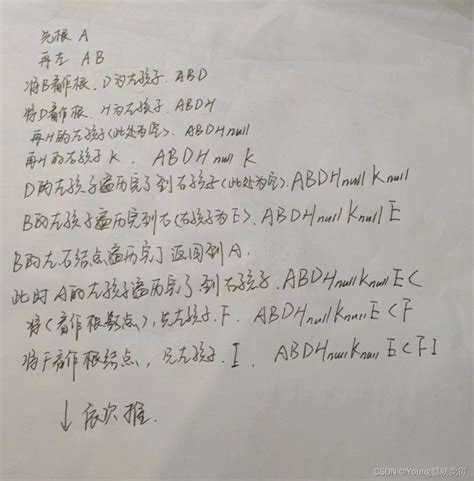 先根 A
再左 AB
将B看作根. D为左孩子. ABD
将D看作根. H为左孩子. ABDH
再H的左孩子(此处为空). ABDHnull
再H的右孩子K. ABDHnull K
D的左孩子遍历完了到右孩子(此处为空).ABDHnullKnull
B的左孩子遍历完到右(右孩子为E). ABDHnullKnullE
B的左.右结点遍历完了返回到A.
此时A的左孩子遍历完了到右孩子. ABDHnullKnullEC
将C看作根结点), 先左孩子. F. ABDHnullKnullECF
将F看作根结点, 先左孩子. I. ABDHnullKnullECFI
↓依次推.
CSDN @Young都就觉得